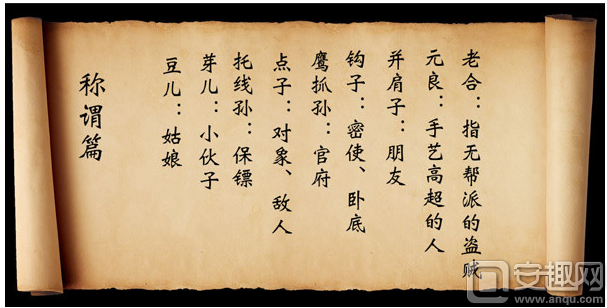 老合：指无帮派的盗贼
元良：手艺高超的人
并肩子：朋友
钩子：密使、卧底
鹰抓孙：官府
点子：对象、敌人
托线孙：保镖
芽儿：小伙子
豆儿：姑娘
称谓篇
安趣网
www.anqu.com